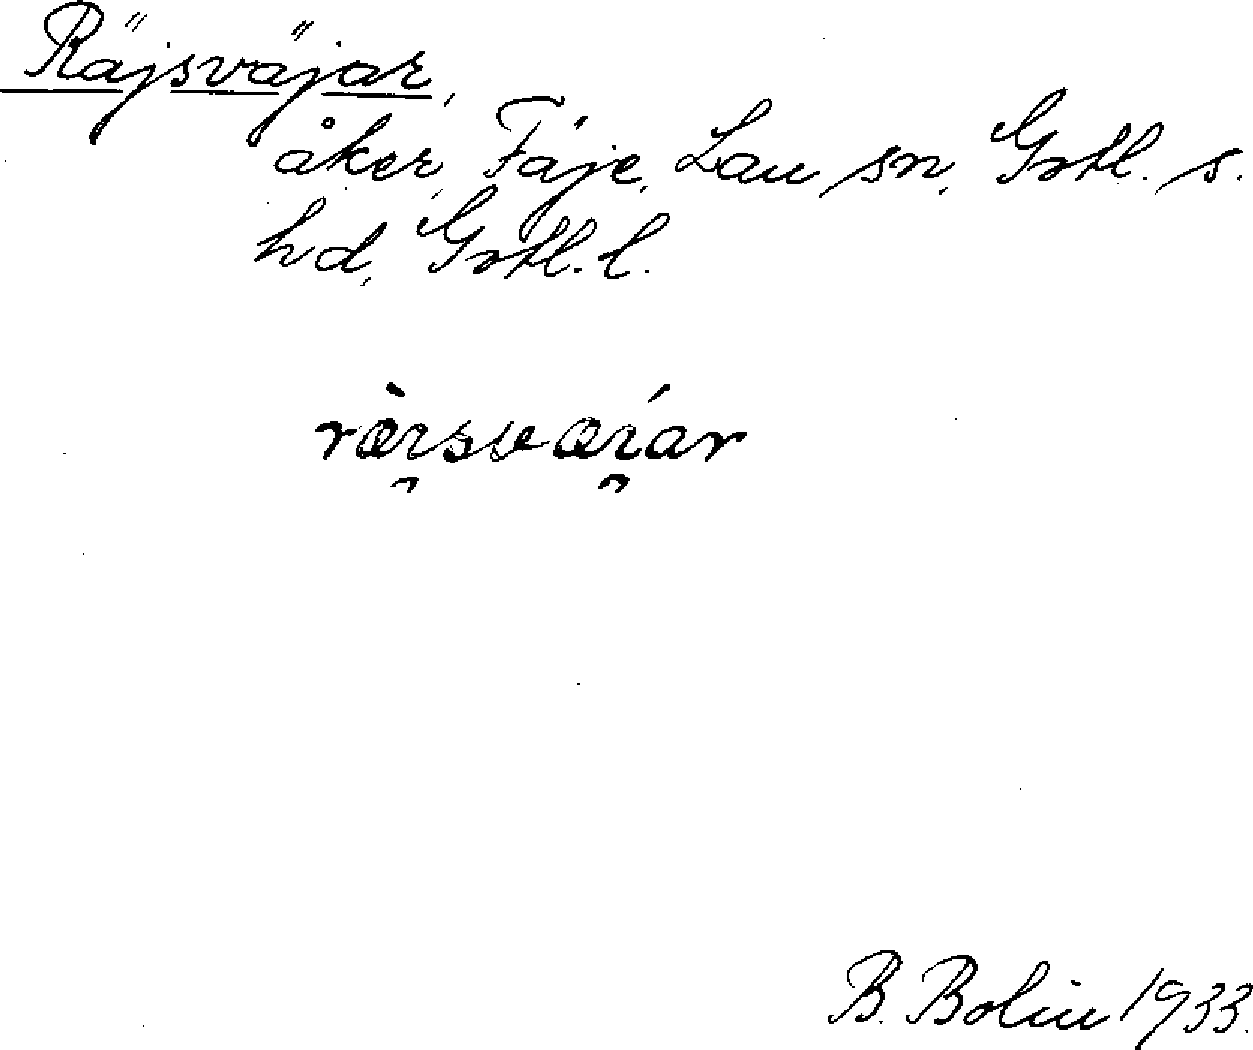 Räjsväjar,
åker, Fäje, Lau sn, Gotl. s.
hd, Gotl. l.
ræ̀i̯ssvæi̯ár
B. Bolin 1933.